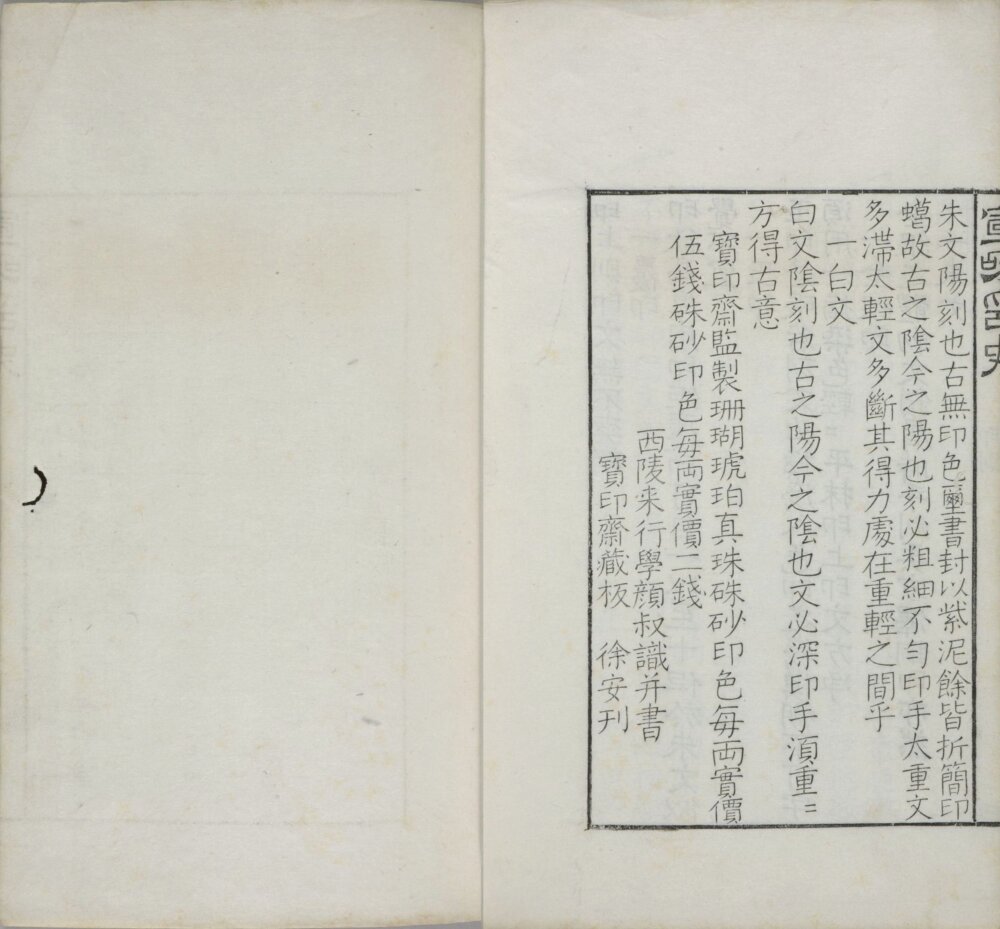 朱文陽刻也古無印色璽書封以紫泥餘皆折簡印
蠟故古之陰今之陽也刻必粗細不勻印手太重文
多滯太輕文多斷其得力處在重輕之間乎
一白文
白文陰刻也古之陽今之陰也文必深印手湏重〻
方得古意
寶印齋監製珊瑚琥珀真珠硃砂印色每両實價
伍錢硃砂印色每両實價二錢
西陵来行學顔叔識并書
寶印齋藏板 徐安刋